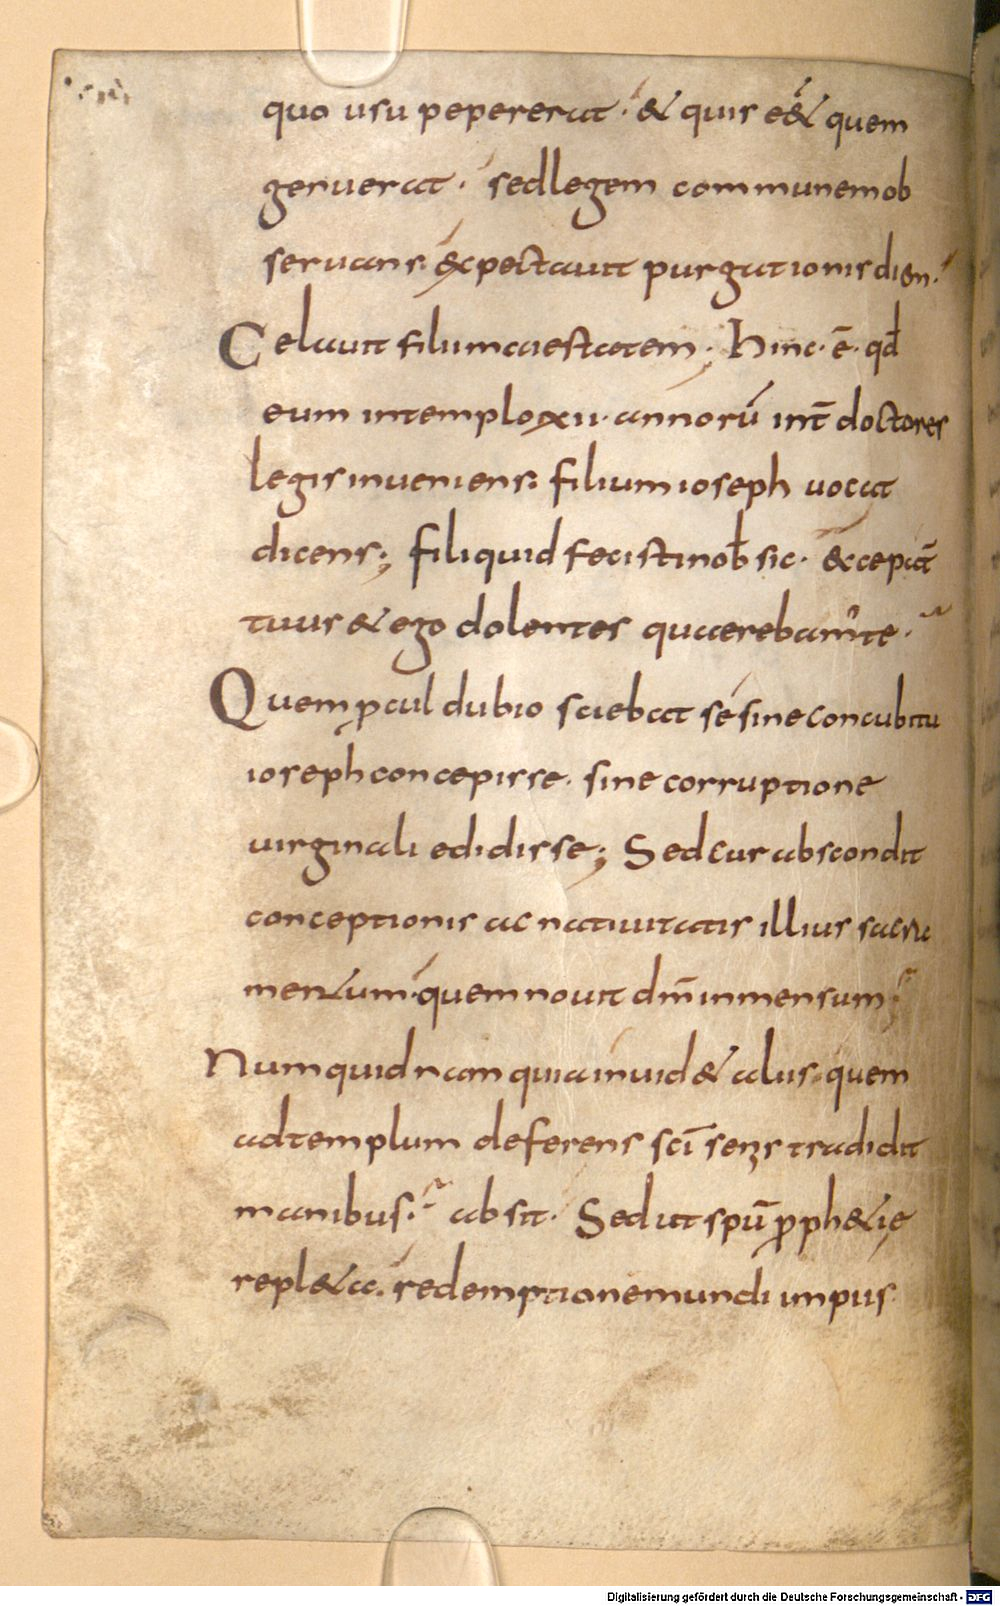 quo usu pepererat · & quis e& quem
genuerat · sed legem communem ob
servans · expectavit purgationis diem ·
Celavit filium aestatem ; Hinc · ē · qd̄
eum in templo xii · annorū int̄ doctores
legis inveniens · filium ioseph vocat
dicens ; fili quid fecisti nob̄ sic · & cepat̄
tuus & ego dolentes quaerebam᾽ te ·
Quem ꝓcul dubio sciebat se sine concubitu
ioseph concepisse · sine corruptione
virginali edidisse ; Sed cur abscondit
conceptionis ac nativitatis illius sacra
mentum · quem novit dm̄ inmensum ·
Numquidnam quia invid& aliis · quem
ad templum deferens sc̄i senis tradidit
manibus · absit · Sed ut spū ꝓph&ię
repl&a · redemptione mundi impiis
Digitalisierung gefördert durch die Deutsche Forschungsgemeinschaft - DFG